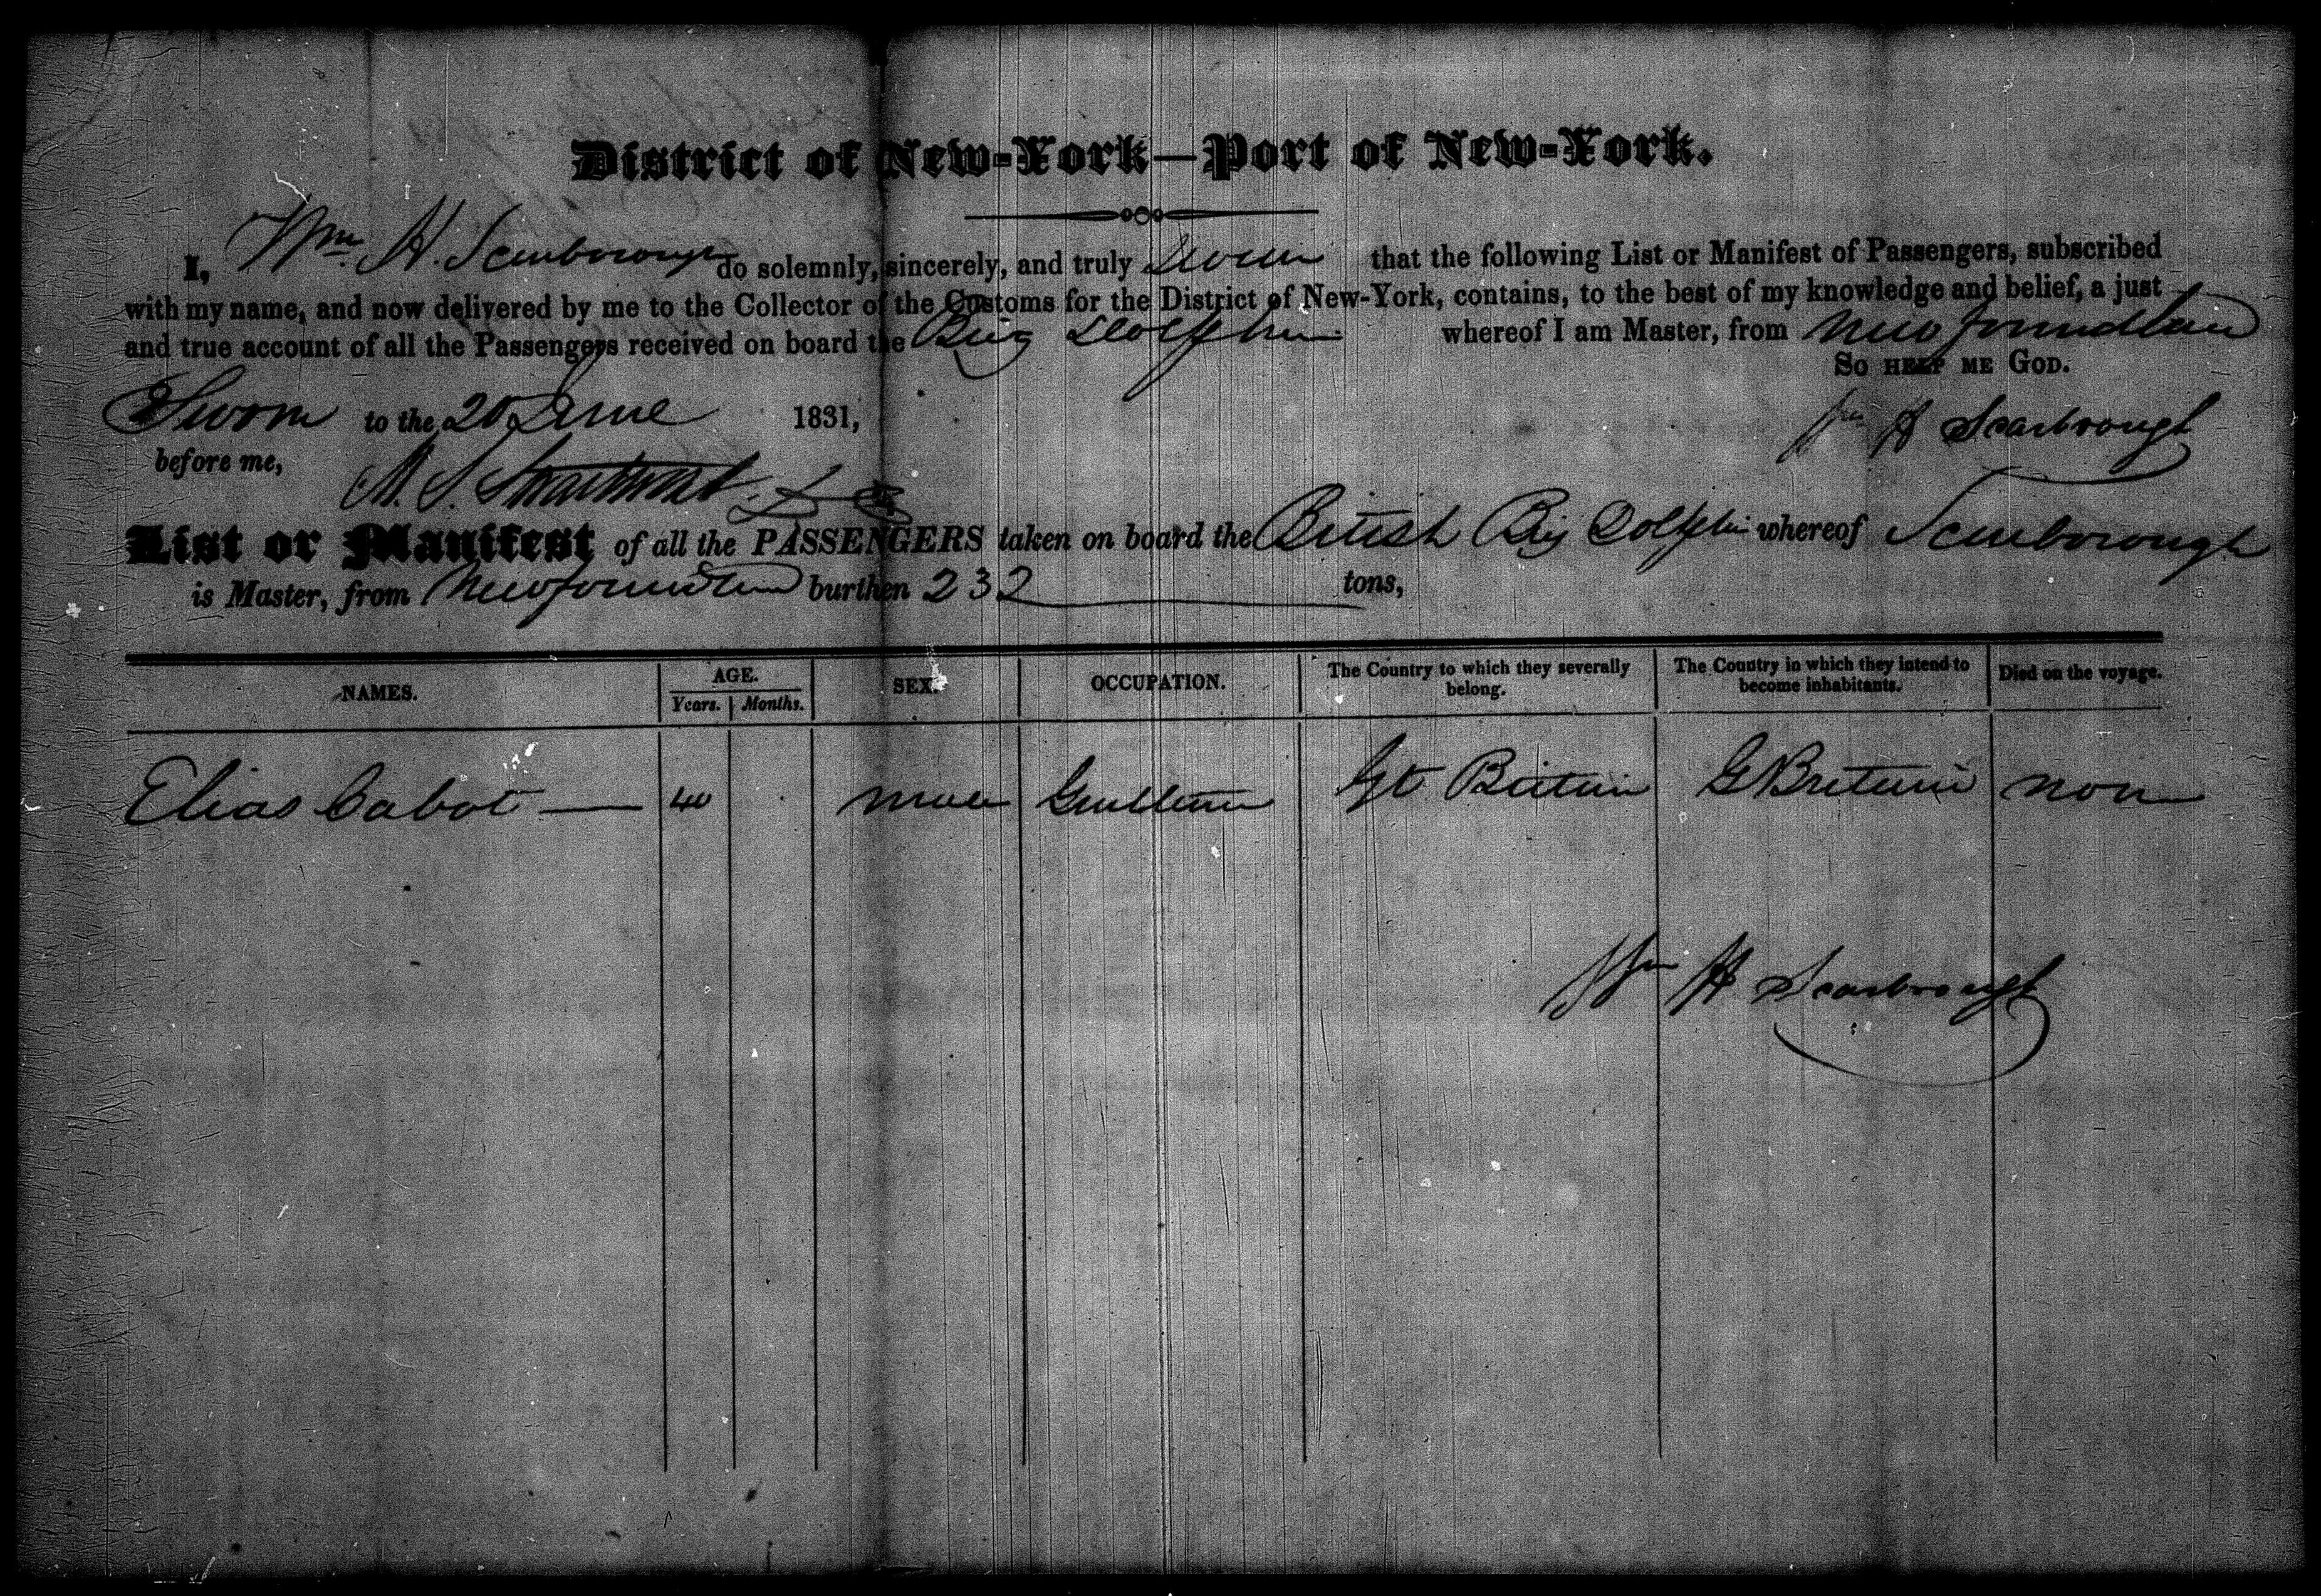 District of New-York—Port of New-York.
I, Wm. H. Scarborough do solemnly, sincerely, and truly Swear that the following List or Manifest of Passengers, subscribed
with my name, and now delivered by me to the Collector of the Customs for the District of New-York, contains, to the best of my knowledge and belief, a just
and true account of all the Passengers received on board the Brig Dolphin whereof I am Master, from Newfoundland
So HELP ME GOD.
Sworn to the 20 June 1831,
Wm H Scarbrough
before me,
List or Manifest of all the PASSENGERS taken on board the British Brig Dolphin whereof Scarborough
is Master, from Newfoundland burthen 232 tons,
NAMES. AGE. SEX. OCCUPATION. The Country to which they severally belong. The Country in which they intend to become inhabitants. Died on the voyage.
Years. Months.
Elias Cabot — 40 male Gentleman Gt Britain G Britain non
Wm H Scarbrough